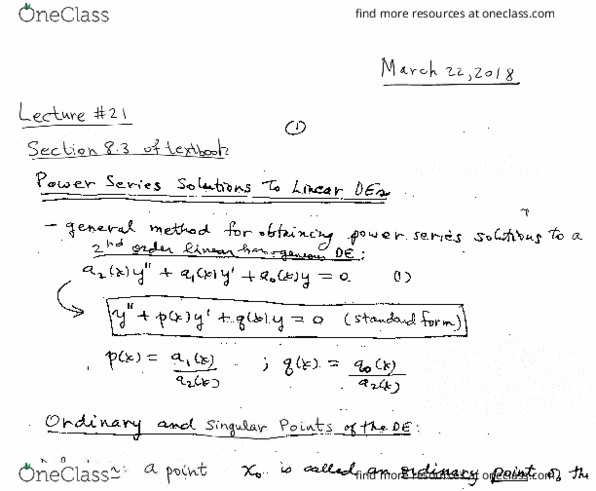 OneClass find more resources at oneclass.com
March 22, 2018
Lecture #21
(1)
Section 8.3 of textbook:
Power Series Solutions To Linear DEs
- general method for obtaining power series solutions to a
2nd order linear homogeneous DE:
a₂(x)y'' + a₁(x)y' + a₀(x)y = 0. (1)
y'' + p(x)y' + q(x)y = 0 (standard form)
p(x) = a₁(x)/a₂(x) ; q(x) = a₀(x)/a₂(x)
Ordinary and Singular Points of the DE:
a point x₀ is called an ordinary point of the
OneClass find more resources at oneclass.com